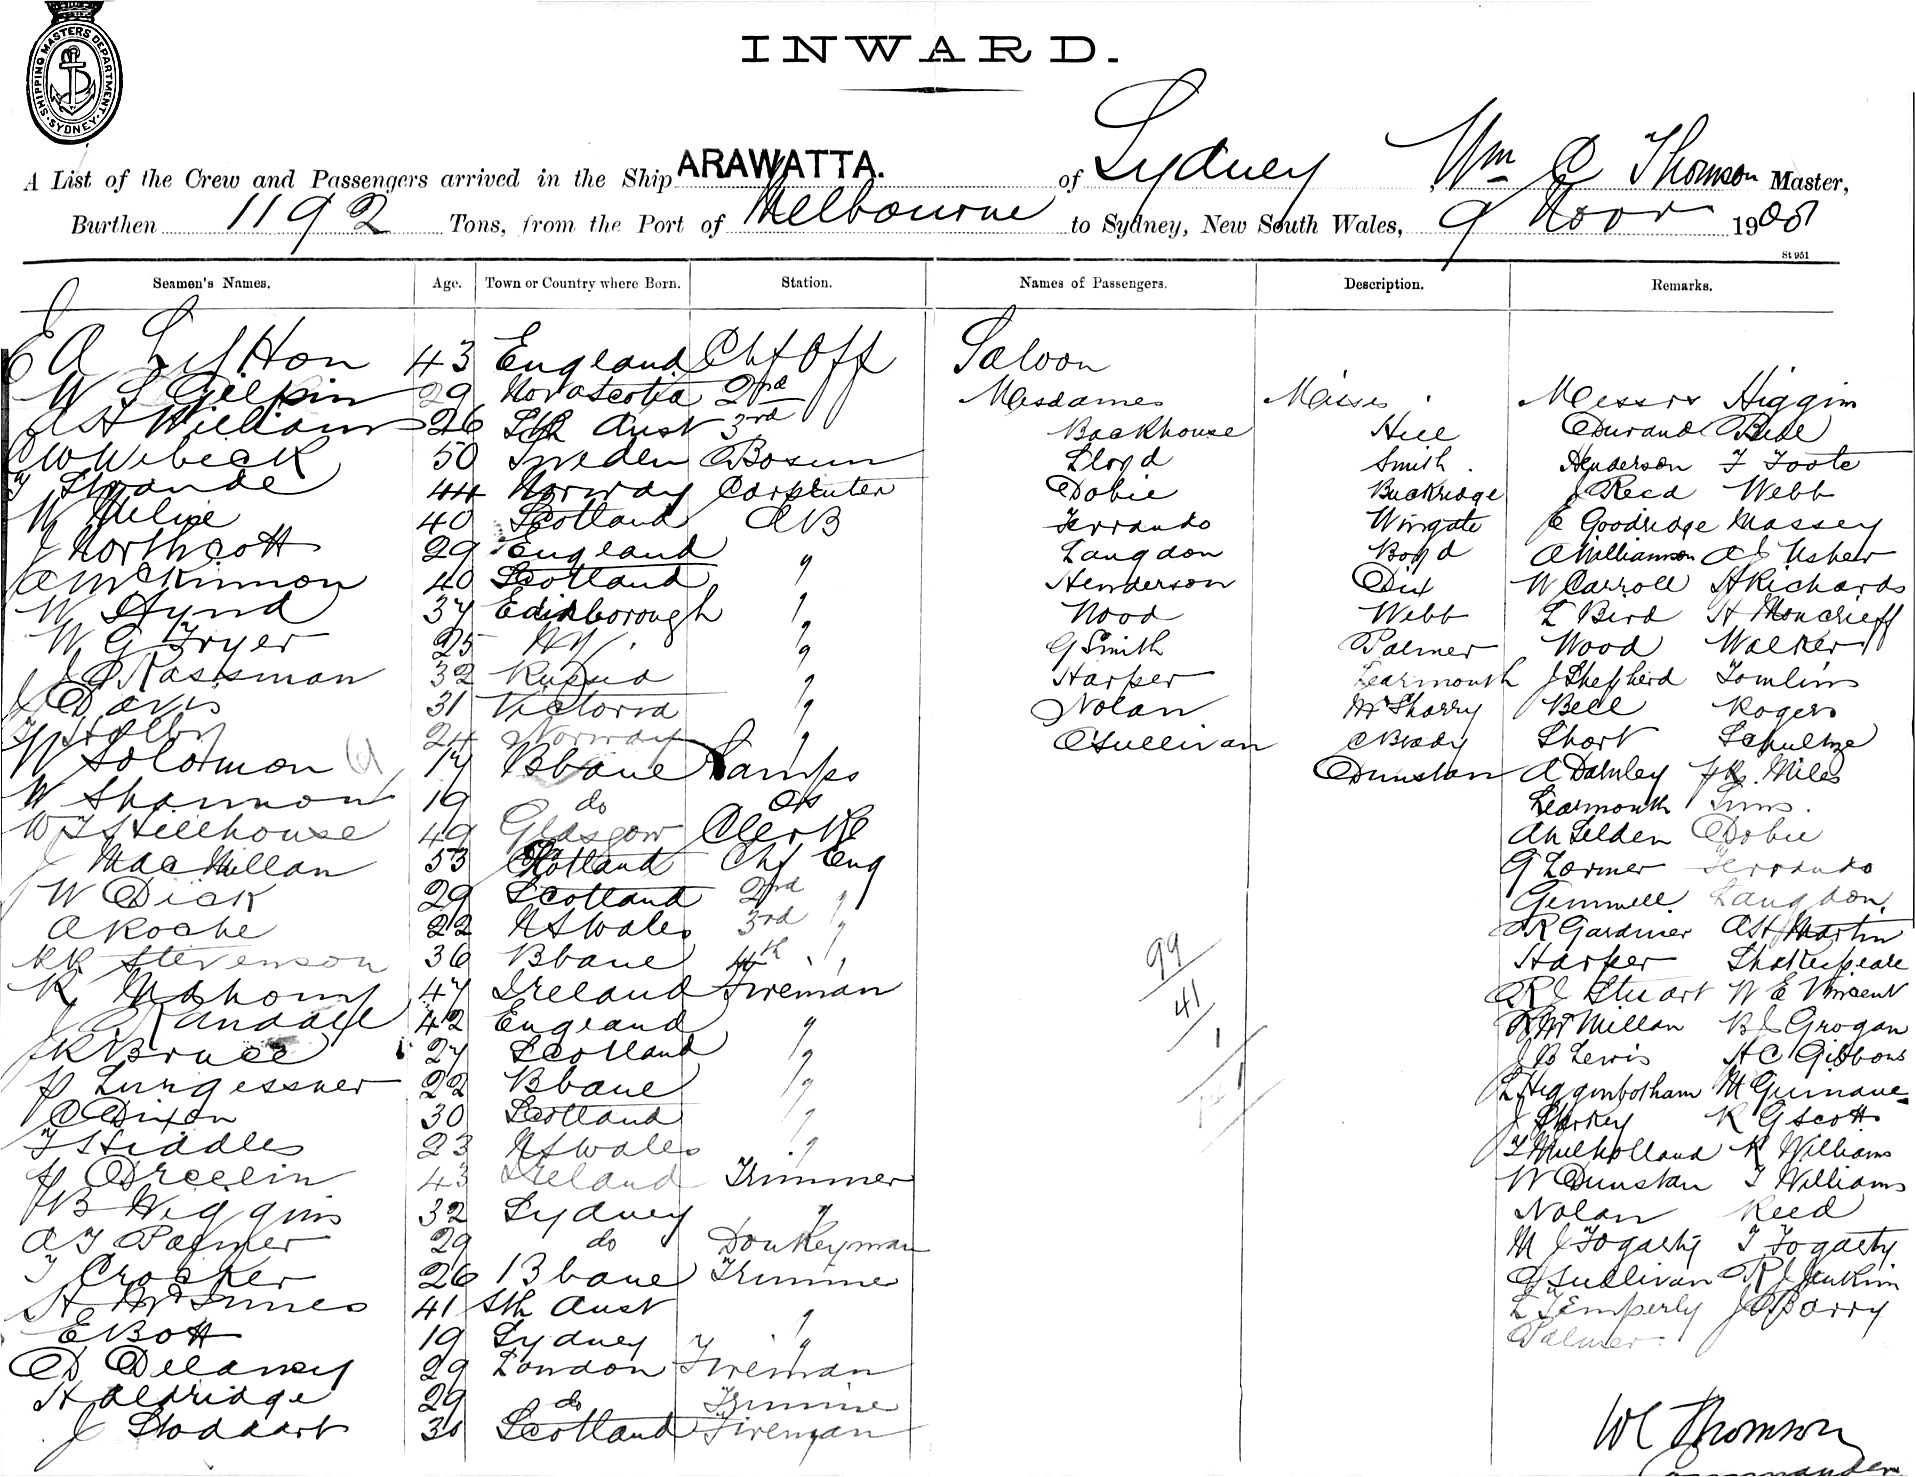 SHIPPING MASTERS DEPARTMENT. SYDNEY.
INWARD.
A List of the Crew and Passengers arrived in the Ship ARAWATTA. of Sydney, Wm C Thomson Master,
Burthen 1192 Tons, from the Port of Melbourne to Sydney, New South Wales, 9 Novr 1908
St 951
Seamen's Names. Age. Town or Country where Born. Station. Names of Passengers. Description. Remarks.
43 England Chf Off Saloon
W S Gilpin 29 Nova Scotia 2nd Mesdames Misses Messrs Higgins
A H Williams 26 Sth Aust 3rd Backhouse Hill Durand
C W Wibeck 50 Sweden Bosun Lloyd Smith Henderson F Foote
44 Norway Carpenter Dobie Buckridge J Reed Webb
W 40 Scotland AB Ferrando Wingate E Goodridge Massey
J Northcott 29 England " Langdon Boyd A Williamson A J Usher
A McKinnon 40 Scotland " Henderson Dix W Carroll H Richards
W Hynd 37 Edinborough " Wood Webb L Bird H Moncrieff
W G Fryer 25 " G Smith Palmer Wood Walker
J Rassman 32 Russia " Harper Learmonth J Shepherd Tomlins
J Davis 31 Victoria " Nolan McSharry Bell Rogers
24 Norway " O'Sullivan C Brady Short Schultze
W Solomon 17 Bbane Lamps Dunstan A Dahley Miles
W Shannon 19 do OS Learmonth Sims.
W T Hillhouse 49 Glasgow Clerke Selden Dobie
J MacMillan 53 Scotland Chf Eng G Lormer Ferrando
W Dick 29 Scotland 2nd " Gemmell Langdon.
A Roche 22 N S Wales 3rd " R Gardiner A H Martin
R R Stevenson 36 Bbane 4th " Harper Shakespeare
R Mahony 47 Ireland Fireman R J Stuart W E Vincent
J Randall 42 England " R McMillan B J Grogan
J R Bruce 27 Scotland " J B Lewis H C Gibbons
P Lungessner 22 Bbane " L Higginbotham M Guinane
C Dixon 30 Scotland " J Sharkey R G Scott
T Hiddles 23 N S Wales " T Mulholland R Williams
P Dreelin 43 Ireland Trimmer W Dunstan T Williams
J B Higgins 32 Sydney " Nolan Reed
A T Palmer 29 do Donkeyman M J Fogarty T Fogarty
T Crocker 26 Bbane Trimmer O'Sullivan R J Jenkin
H McInnes 41 Sth Aust " L Temperly J Barry
E Bott 19 Sydney " Palmer
D Delaney 29 London Fireman
H Aldridge 29 do Trimmer
J Stoddart 30 Scotland Fireman
99
41
1
141
W C Thomson
Commander